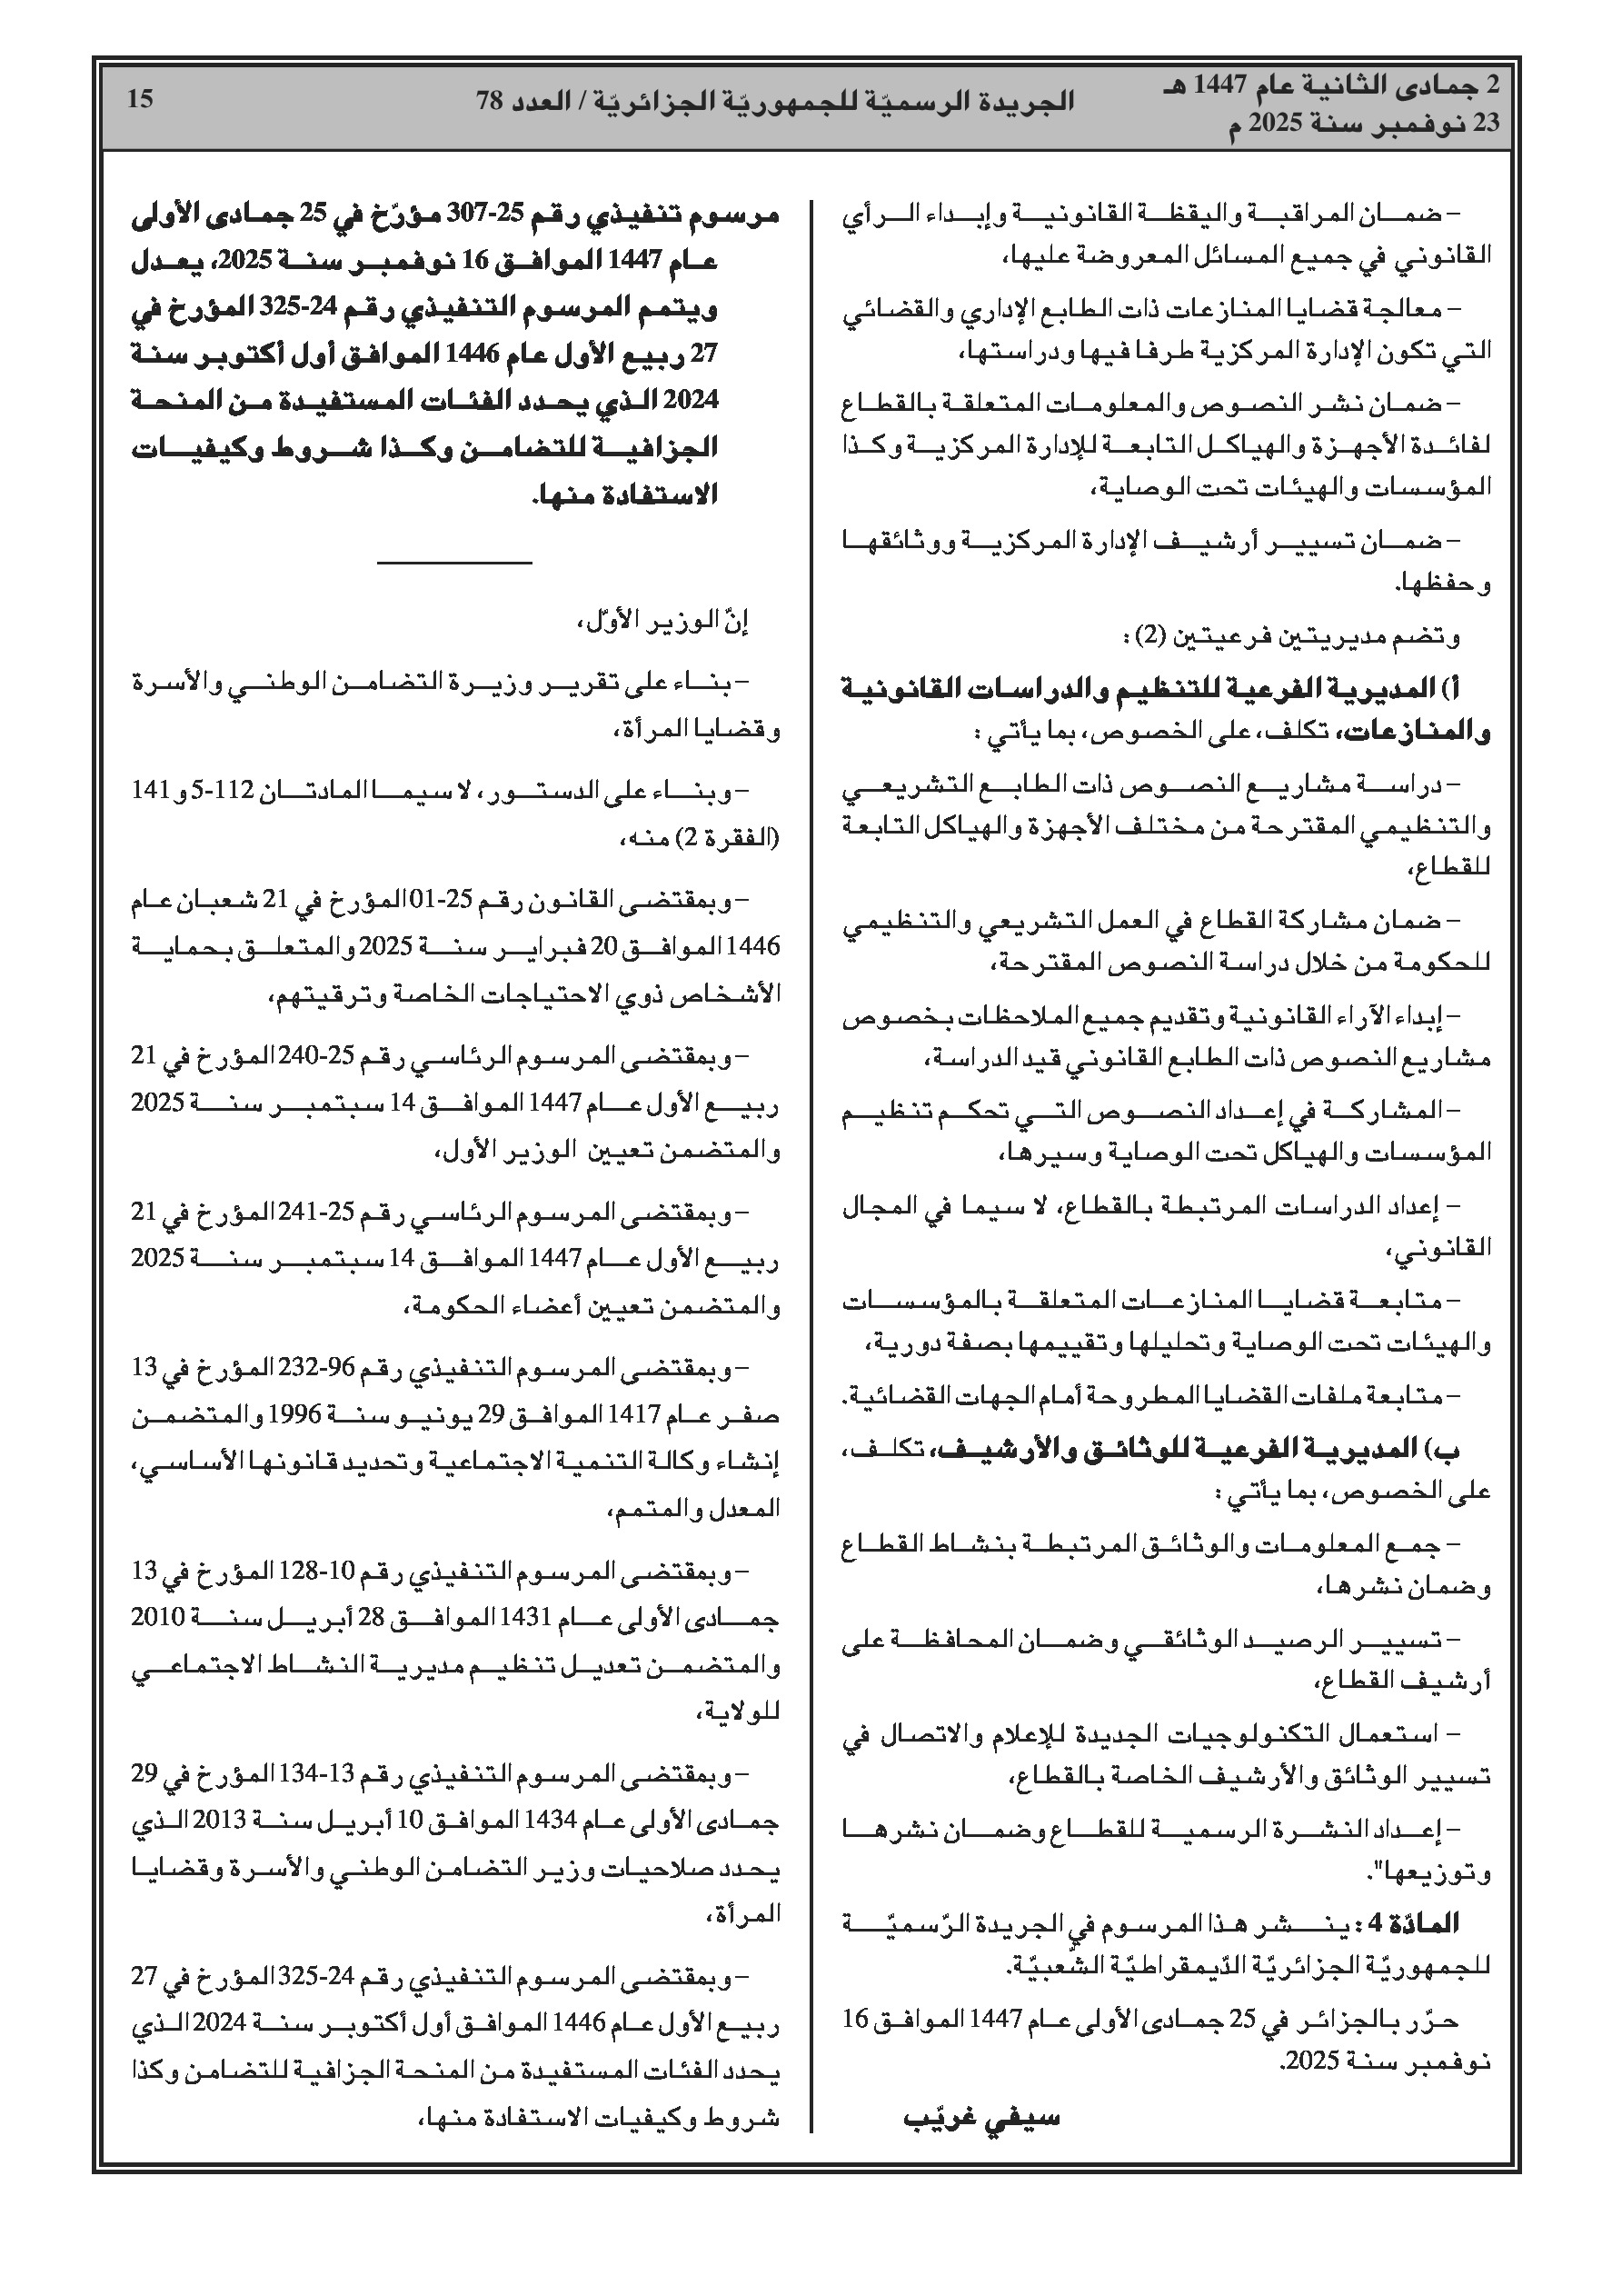 2 جمادى الثانية عام 1447 هـ
23 نوفمبر سنة 2025 م
الجريدة الرسميّة للجمهوريّة الجزائريّة / العدد 78
15
– ضمان المراقبة واليقظة القانونية وإبداء الرأي
القانوني في جميع المسائل المعروضة عليها،
– معالجة قضايا المنازعات ذات الطابع الإداري والقضائي
التي تكون الإدارة المركزية طرفا فيها ودراستها،
– ضمان نشر النصوص والمعلومات المتعلقة بالقطاع
لفائدة الأجهزة والهياكل التابعة للإدارة المركزية وكذا
المؤسسات والهيئات تحت الوصاية،
– ضمان تسيير أرشيف الإدارة المركزية ووثائقها
وحفظها.
وتضم مديريتين فرعيتين (2) :
أ) المديرية الفرعية للتنظيم والدراسات القانونية
والمنازعات، تكلف، على الخصوص، بما يأتي :
– دراسة مشاريع النصوص ذات الطابع التشريعي
والتنظيمي المقترحة من مختلف الأجهزة والهياكل التابعة
للقطاع،
– ضمان مشاركة القطاع في العمل التشريعي والتنظيمي
للحكومة من خلال دراسة النصوص المقترحة،
– إبداء الآراء القانونية وتقديم جميع الملاحظات بخصوص
مشاريع النصوص ذات الطابع القانوني قيد الدراسة،
– المشاركة في إعداد النصوص التي تحكم تنظيم
المؤسسات والهياكل تحت الوصاية وسيرها،
– إعداد الدراسات المرتبطة بالقطاع، لا سيما في المجال
القانوني،
– متابعة قضايا المنازعات المتعلقة بالمؤسسات
والهيئات تحت الوصاية وتحليلها وتقييمها بصفة دورية،
– متابعة ملفات القضايا المطروحة أمام الجهات القضائية.
ب) المديرية الفرعية للوثائق والأرشيف، تكلف،
على الخصوص، بما يأتي :
– جمع المعلومات والوثائق المرتبطة بنشاط القطاع
وضمان نشرها،
– تسيير الرصيد الوثائقي وضمان المحافظة على
أرشيف القطاع،
– استعمال التكنولوجيات الجديدة للإعلام والاتصال في
تسيير الوثائق والأرشيف الخاصة بالقطاع،
– إعداد النشرة الرسمية للقطاع وضمان نشرها
وتوزيعها".
المادّة 4 : ينشر هذا المرسوم في الجريدة الرّسميّة
للجمهوريّة الجزائريّة الدّيمقراطيّة الشّعبيّة.
حرّر بالجزائر في 25 جمادى الأولى عام 1447 الموافق 16
نوفمبر سنة 2025.
سيفي غريّب
مرسوم تنفيذي رقم 25-307 مؤرّخ في 25 جمادى الأولى
عام 1447 الموافق 16 نوفمبر سنة 2025، يعدل
ويتمم المرسوم التنفيذي رقم 24-325 المؤرخ في
27 ربيع الأول عام 1446 الموافق أول أكتوبر سنة
2024 الذي يحدد الفئات المستفيدة من المنحة
الجزافية للتضامن وكذا شروط وكيفيات
الاستفادة منها.
إنّ الوزير الأوّل،
– بناء على تقرير وزيرة التضامن الوطني والأسرة
وقضايا المرأة،
– وبناء على الدستور، لا سيما المادتان 112-5 و 141
(الفقرة 2) منه،
– وبمقتضى القانون رقم 25-01 المؤرخ في 21 شعبان عام
1446 الموافق 20 فبراير سنة 2025 والمتعلق بحماية
الأشخاص ذوي الاحتياجات الخاصة وترقيتهم،
– وبمقتضى المرسوم الرئاسي رقم 25-240 المؤرخ في 21
ربيع الأول عام 1447 الموافق 14 سبتمبر سنة 2025
والمتضمن تعيين الوزير الأول،
– وبمقتضى المرسوم الرئاسي رقم 25-241 المؤرخ في 21
ربيع الأول عام 1447 الموافق 14 سبتمبر سنة 2025
والمتضمن تعيين أعضاء الحكومة،
– وبمقتضى المرسوم التنفيذي رقم 96-232 المؤرخ في 13
صفر عام 1417 الموافق 29 يونيو سنة 1996 والمتضمن
إنشاء وكالة التنمية الاجتماعية وتحديد قانونها الأساسي،
المعدل والمتمم،
– وبمقتضى المرسوم التنفيذي رقم 10-128 المؤرخ في 13
جمادى الأولى عام 1431 الموافق 28 أبريل سنة 2010
والمتضمن تعديل تنظيم مديرية النشاط الاجتماعي
للولاية،
– وبمقتضى المرسوم التنفيذي رقم 13-134 المؤرخ في 29
جمادى الأولى عام 1434 الموافق 10 أبريل سنة 2013 الذي
يحدد صلاحيات وزير التضامن الوطني والأسرة وقضايا
المرأة،
– وبمقتضى المرسوم التنفيذي رقم 24-325 المؤرخ في 27
ربيع الأول عام 1446 الموافق أول أكتوبر سنة 2024 الذي
يحدد الفئات المستفيدة من المنحة الجزافية للتضامن وكذا
شروط وكيفيات الاستفادة منها،